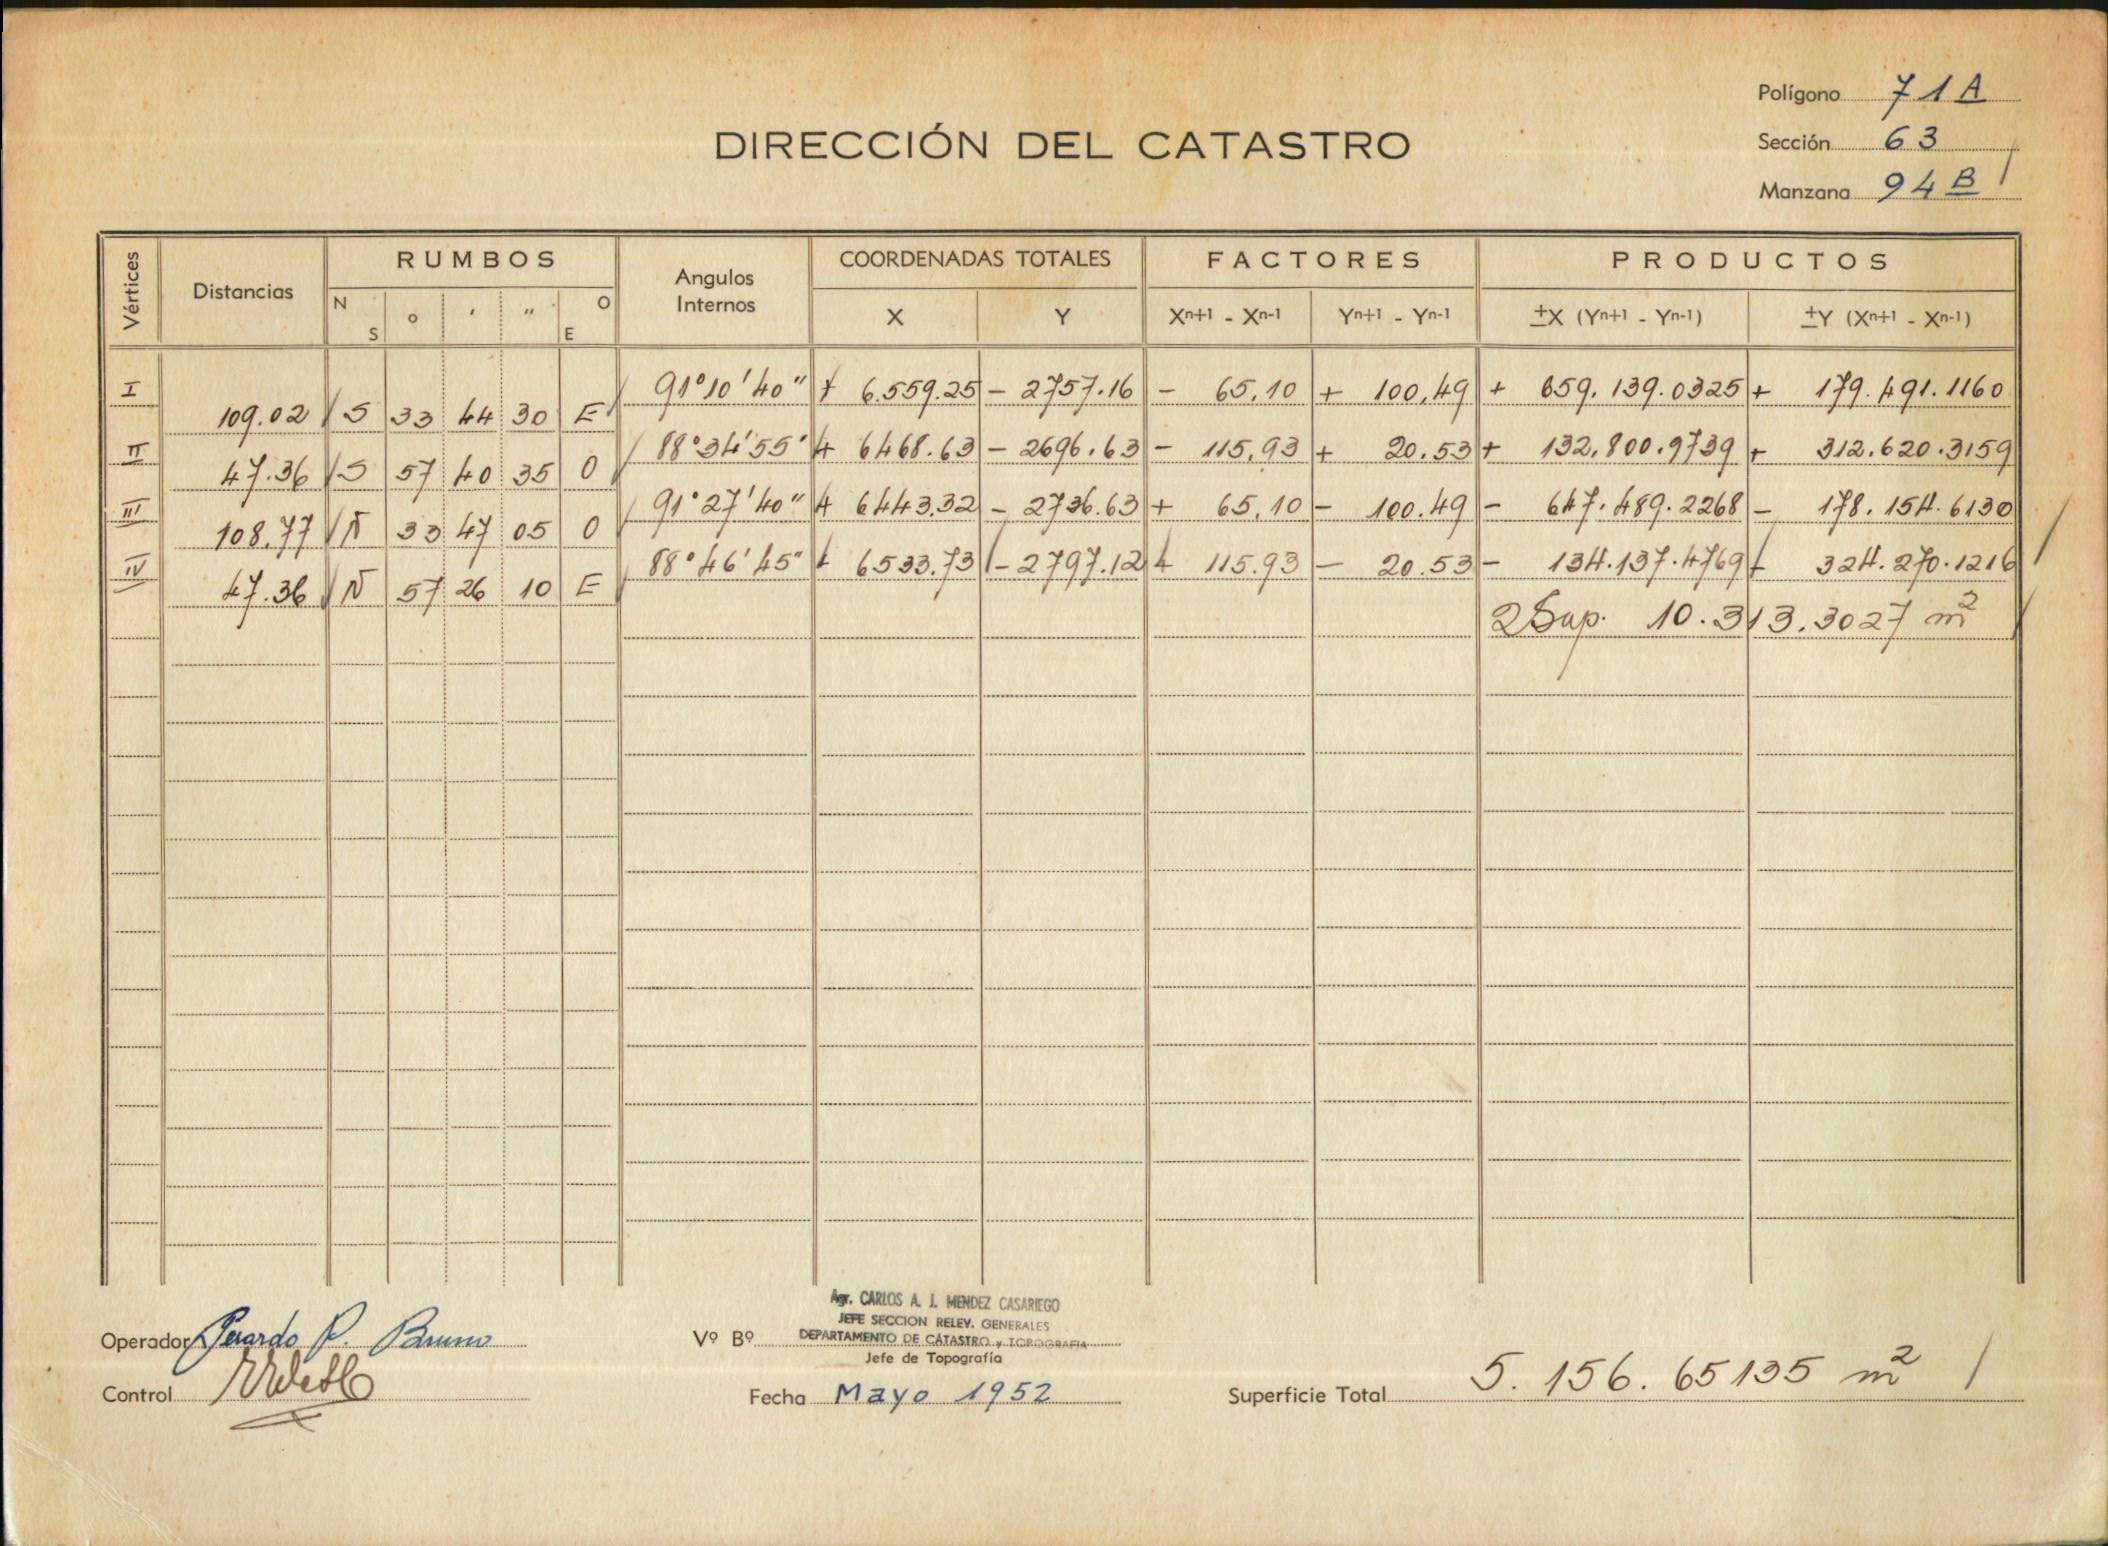 Polígono 71A
DIRECCIÓN DEL CATASTRO
Sección 63
Manzana 94B
Vértices Distancias RUMBOS Angulos Internos COORDENADAS TOTALES FACTORES PRODUCTOS
N S ° ' " O E X Y Xn+1 - Xn-1 Yn+1 - Yn-1 ±X (Yn+1 - Yn-1) ±Y (Xn+1 - Xn-1)
I 91°10'40" + 6.559.25 - 2757.16 - 65,10 + 100,49 + 659.139.0325 + 179.491.1160
109.02 S 33 44 30 E
II 88°34'55' + 6468.63 - 2696.63 - 115,93 + 20.53 + 132.800.9739 + 312.620.3159
47.36 S 57 40 35 O
III 91°27'40" + 6443.32 - 2736.63 + 65,10 - 100.49 - 647.489.2268 - 178.154.6130
108.77 N 33 47 05 O
IV 88°46'45" + 6533.73 - 2797.12 + 115.93 - 20.53 - 134.137.4769 - 324.270.1216
47.36 N 57 26 10 E
2 Sup. 10.313.3027 m²
Agr. CARLOS A. J. MENDEZ CASARIEGO
JEFE SECCION RELEV. GENERALES
DEPARTAMENTO DE CATASTRO y TOPOGRAFIA
Operador P. Bruno Vº Bº
Jefe de Topografía
Control Fecha Mayo 1952 Superficie Total 5.156.65135 m²